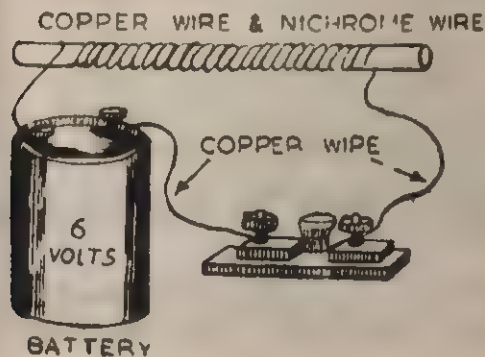 COPPER WIRE & NICHROME WIRE
COPPER WIRE
6
VOLTS
BATTERY